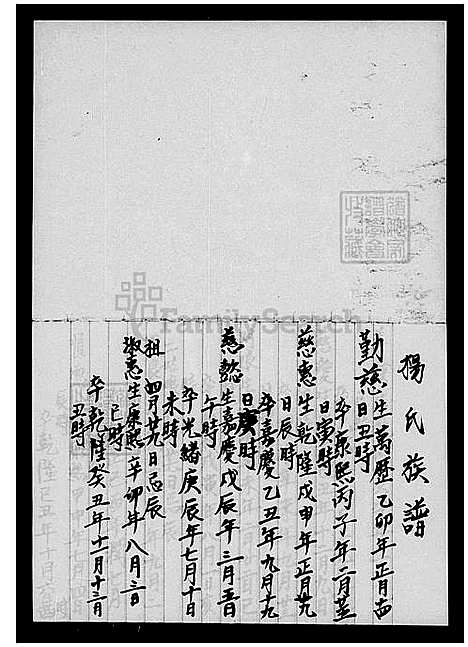 楊氏族譜
勤慈生萬歷乙卯年正月十四
日丑時
卒康熙丙子年二月廿
日寅時
慈惠生乾隆戊申年正月廿九
日辰時
卒嘉慶乙丑年九月十九
日庚時
慈懿生嘉慶戊辰年三月五日
午時
卒光緒庚辰年七月十日
未時
祖 四月廿九日忌辰
淑惠生康熙辛卯年八月三日
巳時
卒乾隆癸丑年十一月十三日
丑時
FamilySearch